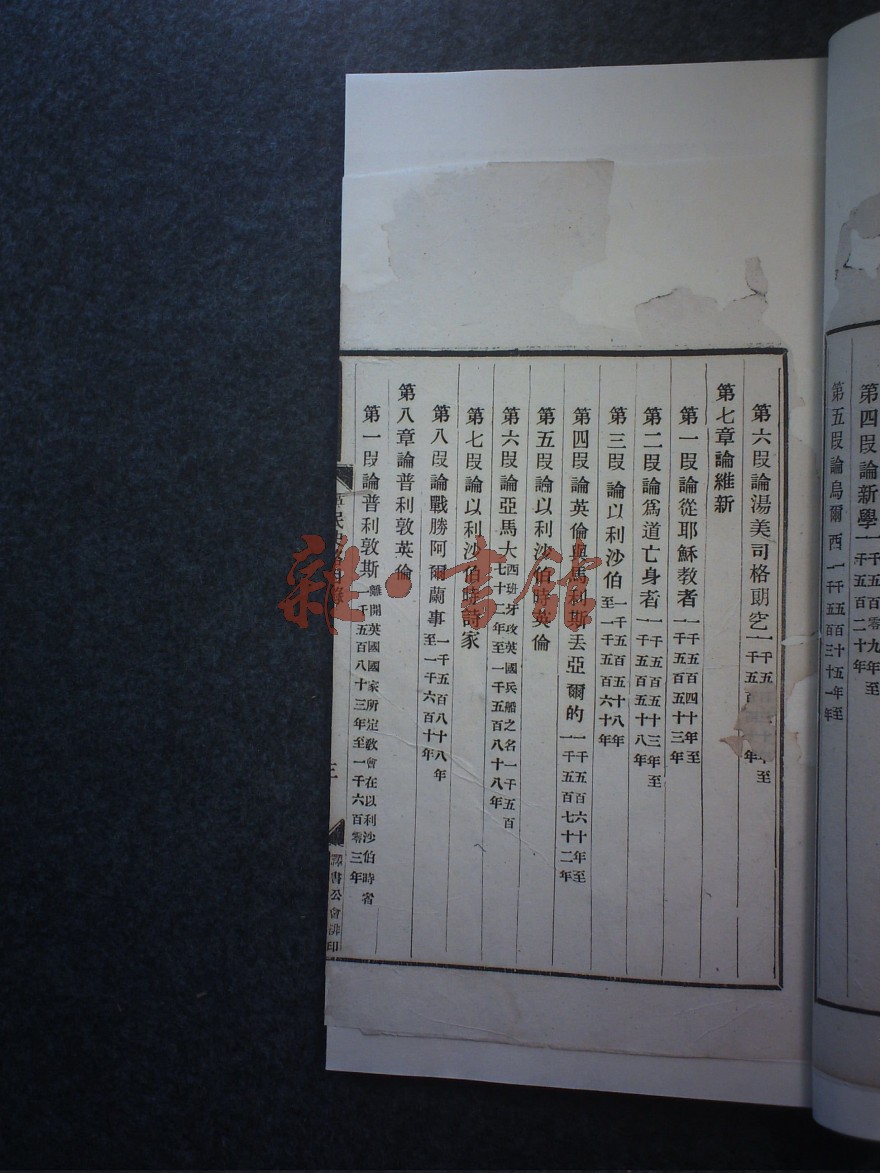 第四段論新學一千五百零九年至一千五百二十年
第五段論烏爾西一千五百十五年至一千五百三十一年
第六段論湯美司格朗空一千五百 十年至一千五百 十年
第七章論維新
第一段論從耶穌教者一千五百四十年至一千五百五十三年
第二段論爲道亡身者一千五百五十三年至一千五百五十八年
第三段論以利沙伯一千五百五十八年至一千五百六十年
第四段論英倫與馬利斯丢亞爾的一千五百六十年至一千五百七十二年
第五段論以利沙伯時英倫
第六段論亞馬大西班牙攻英國兵船之名一千五百七十年至一千五百八十八年
第七段論以利沙伯時詩家
第八段論戰勝阿爾蘭事一千五百八十八年至一千六百十年
第八章論普利敦英倫
第一段論普利敦斯離開英國國家所定敎會在以利沙伯時省一千五百八十三年至一千六百零三年
民史略目錄
三
譯書公會排印
雜·書館